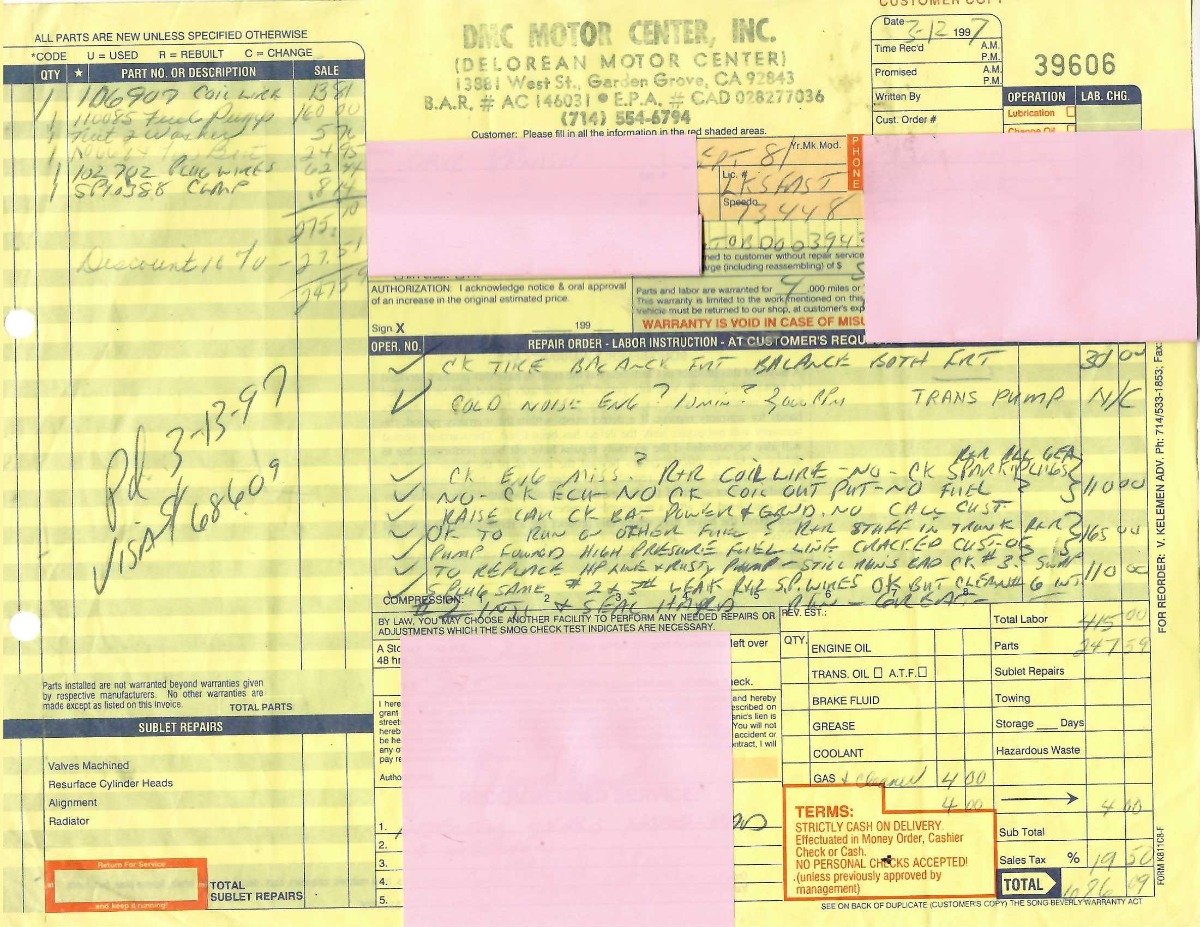 CUSTOMER COPY
ALL PARTS ARE NEW UNLESS SPECIFIED OTHERWISE
*CODE U = USED R = REBUILT C = CHANGE
QTY ★ PART NO. OR DESCRIPTION SALE
1 106907 COIL WIRE 13 81
1 110085 Fuel Pump 160 00
1 Nut & Washer 5
1 24 95
1 102702 PLUG WIRES 62 44
1 SP10388 CLAMP .84
275.10
Discount 10 % - 27.51
247 59
Pd. 3-13-97
VISA $ 686.09
DMC MOTOR CENTER, INC.
(DELOREAN MOTOR CENTER)
13881 West St., Garden Grove, CA 92843
B.A.R. # AC 146031 • E.P.A. # CAD 028277036
(714) 554-6794
Customer: Please fill in all the information in the red shaded areas.
Date 3-12 1997
Time Rec'd A.M. P.M.
Promised A.M. P.M.
Written By
Cust. Order #
39606
OPERATION LAB. CHG.
Lubrication
Change Oil
Yr.Mk.Mod.
81
PHONE
Lic. #
LKSFAST
Speedo.
73448
ned to customer without repair service
arge (including reassembling) of $
AUTHORIZATION: I acknowledge notice & oral approval
of an increase in the original estimated price.
Sign X 199
Parts and labor are warranted for 4 ,000 miles or
This warranty is limited to the work mentioned on this
Vehicle must be returned to our shop, at customer's exp
WARRANTY IS VOID IN CASE OF MISU
OPER. NO. REPAIR ORDER - LABOR INSTRUCTION - AT CUSTOMER'S REQU
✓ CK TIRE BALANCE FRT BALANCE BOTH FRT 30 00
✓ COLD NOISE ENG ? 10 min ? 3,000 RPM TRANS PUMP N/C
✓ CK ENG MISS ? R+R COIL WIRE - NO - CK SPARK PLUGS
✓ NO - CK ECU - NO CK COIL OUT PUT - NO FUEL ? 110 00
✓ RAISE CAR CK BAT POWER & GRND. NO CALL CUST.
✓ OK TO RUN ON OTHER FUEL ? R+R STUFF IN TRUNK R+R 165 00
✓ PUMP FOUND HIGH PRESSURE FUEL LINE CRACKED CUST-OK
✓ TO REPLACE HP LINE & RUSTY PUMP - STILL RUNS BAD CK # 3 SWAP 110 00
✓ S.PLUG SAME # 2 & 3 LEAK R+R S.P. WIRES OK BUT CLEAN # 6 INT
COMPRESSION: 2 3 4 5 6 7 8
# 2 INTI & SEAL HARD RUN - GREAT
BY LAW, YOU MAY CHOOSE ANOTHER FACILITY TO PERFORM ANY NEEDED REPAIRS OR
ADJUSTMENTS WHICH THE SMOG CHECK TEST INDICATES ARE NECESSARY.
REV. EST.:
A Sto
left over
48 hr
eck.
I here
grant
street
hereb
be he
any o
pay re
and hereby
escribed on
anic's lien is
You will not
accident or
ontract, I will
Autho
1.
2.
3.
4.
5.
QTY.
ENGINE OIL
TRANS. OIL A.T.F.
BRAKE FLUID
GREASE
COOLANT
GAS & Cleaner 4 00
4 00
Total Labor 415 00
Parts 247 59
Sublet Repairs
Towing
Storage Days
Hazardous Waste
4 00
Sub Total
Sales Tax % 19 50
TOTAL 686 09
TERMS:
STRICTLY CASH ON DELIVERY.
Effectuated in Money Order, Cashier
Check or Cash.
NO PERSONAL CHECKS ACCEPTED!
(unless previously approved by
management)
SEE ON BACK OF DUPLICATE (CUSTOMER'S COPY) THE SONG BEVERLY WARRANTY ACT
Parts installed are not warranted beyond warranties given
by respective manufacturers. No other warranties are
made except as listed on this Invoice.
TOTAL PARTS
SUBLET REPAIRS
Valves Machined
Resurface Cylinder Heads
Alignment
Radiator
Return For Service
and keep it running!
TOTAL
SUBLET REPAIRS
FOR REORDER: V. KELEMEN ADV. Ph: 714/533-1853; Fax:
FORM K811C8-F